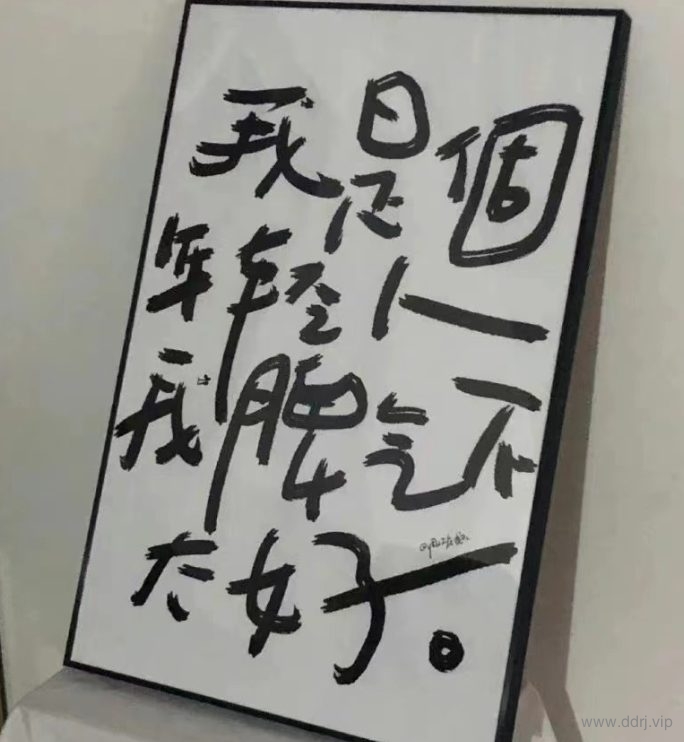 我是個
年轻人
我脾气不
太好。
www.ddrj.vip